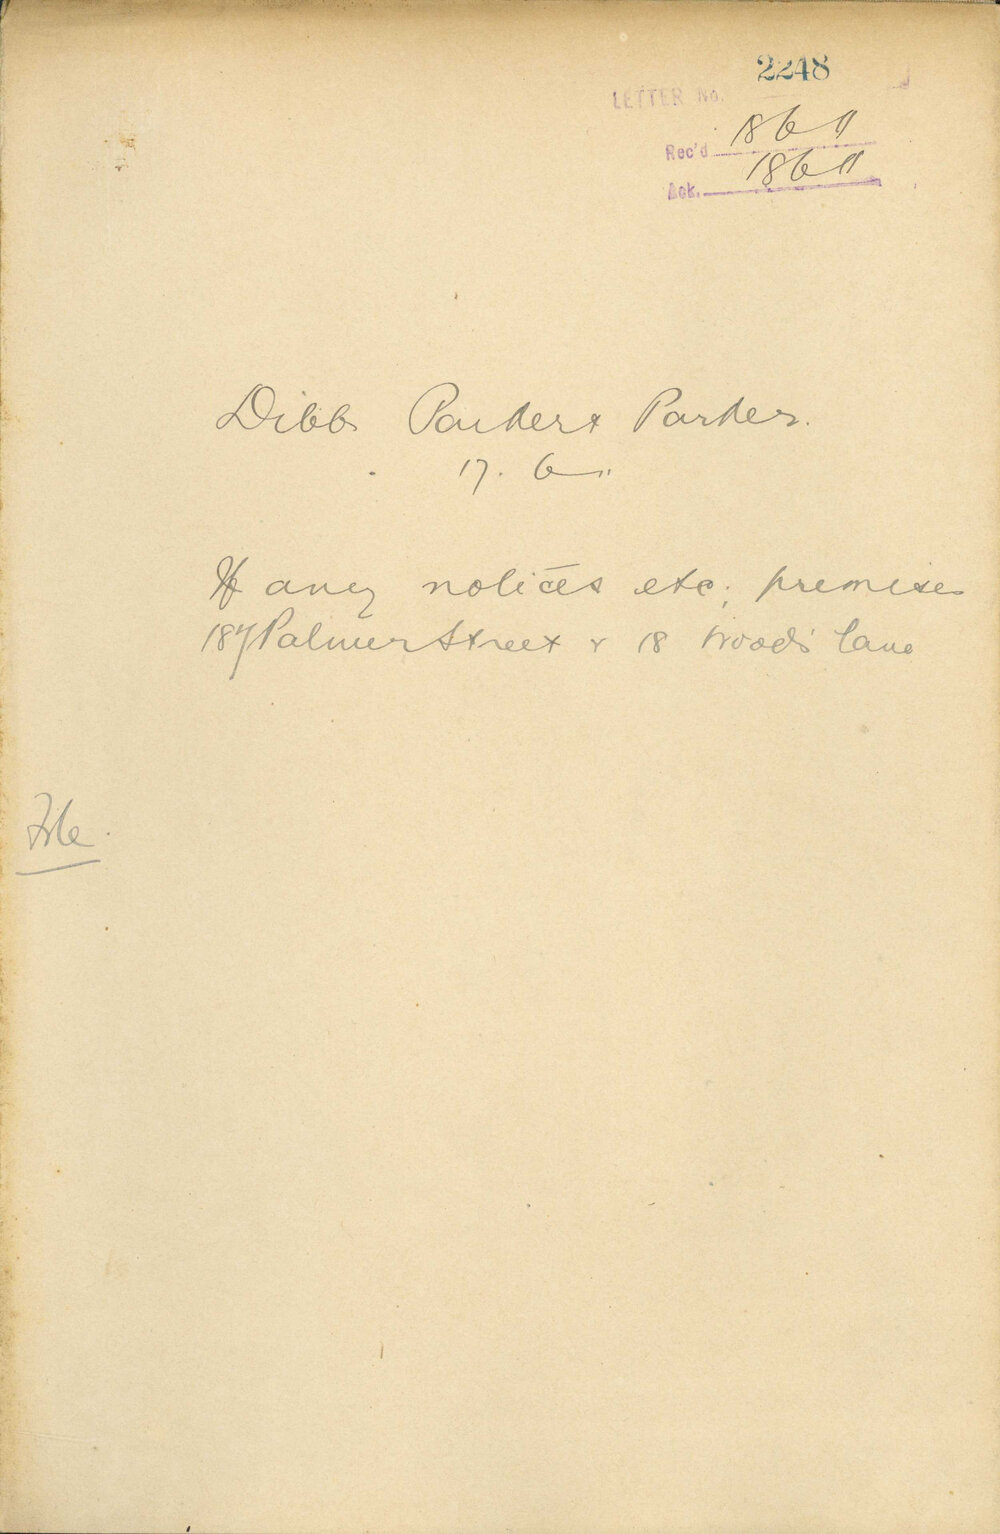 2248
LETTER No.
Rec'd 18 6 11
Ack. 18 6 11
Dibbs Parker & Parker.
17. 6 11
If any notices etc; premises
187 Palmer Street & 18 Woods Lane
File